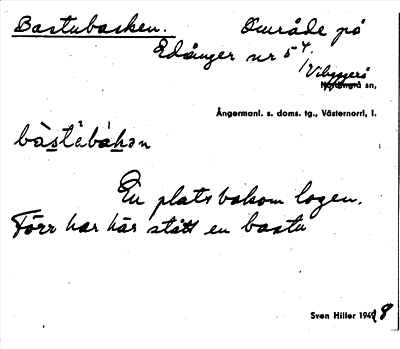 Bastubacken. Område på
Edånger nr 5 4.
/Vibyggerå
Nordingrå sn,
Ångermanl. s. doms. tg., Västernorrl, l.
bàstèbákən
En plats bakom logen.
Förr har här stått en bastu
Sven Hiller 1948